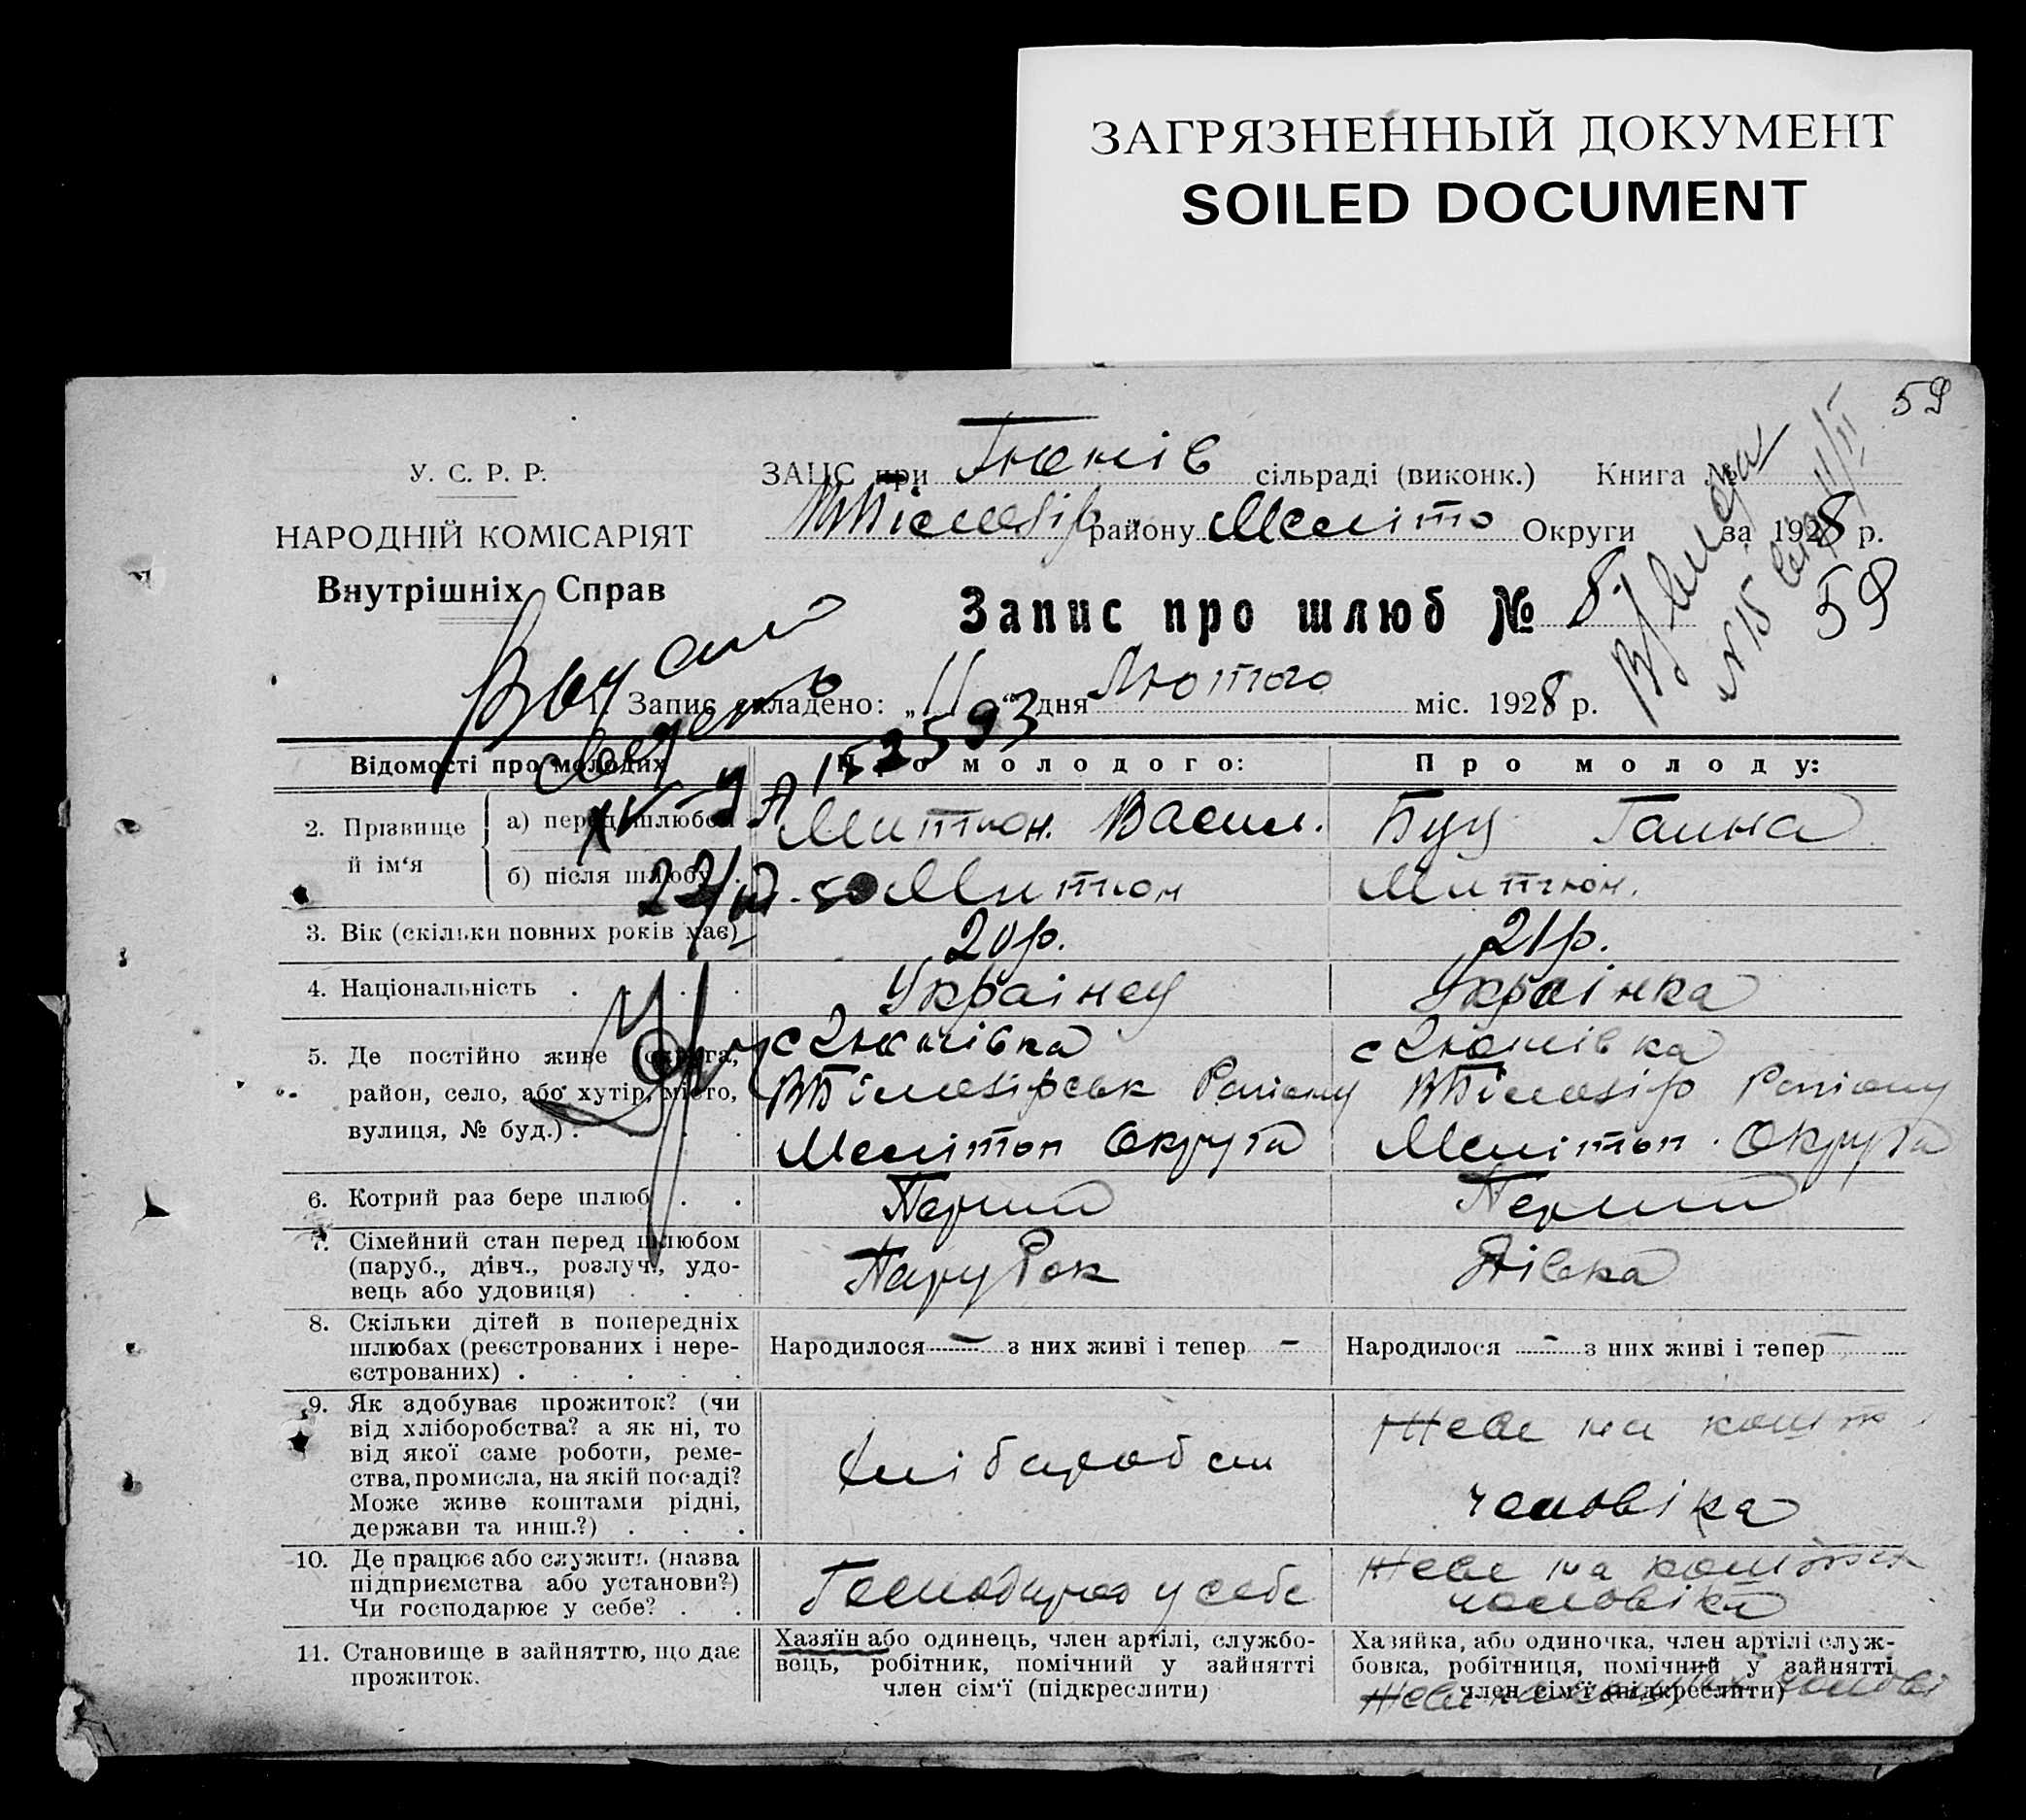 ЗАГРЯЗНЕННЫЙ ДОКУМЕНТ
SOILED DOCUMENT
59
У. С. Р. Р.
НАРОДНІЙ КОМІСАРІЯТ
Внутрішніх Справ
ЗАЦС при сільраді (виконк.) Книга №
району Меліто Округи за 1928 р.
Запис про шлюб № 8.
59
1. Запис складено: „11“ дня Лютого міс. 1928 р.
Відомості про молодих
Про молодого:
Про молоду:
2. Прізвище й ім‘я
а) перед шлюбом
Митюн. Васил.
Буц Ганна
б) після шлюбу
Митюн
Митюн.
22/IV-50
3. Вік (скільки повних років має)
20 р.
21 р.
4. Національність
Українец
Українка
5. Де постійно живе (округа,
район, село, або хутір, місто,
вулиця, № буд.)
ВБілозірськ Району
Мелітоп Округа
ВБілозір Району
Мелітоп. Округа
6. Котрий раз бере шлюб
Перший
Перший
7. Сімейний стан перед шлюбом
(паруб., дівч., розлуч., удо-
вець або удовиця)
Парубок
Дівка
8. Скільки дітей в попередніх
шлюбах (реєстрованих і нере-
єстрованих)
Народилося — з них живі і тепер —
Народилося - з них живі і тепер —
9. Як здобуває прожиток? (чи
від хліборобства? а як ні, то
від якої саме роботи, реме-
ства, промисла, на якій посаді?
Може живе коштами рідні,
держави та инш.?)
Живе на кошти
чоловіка
10. Де працює або служить (назва
підприємства або установи?)
Чи господарює у себе?
Господарює у себе
Живе на коштах
чоловіка
11. Становище в зайняттю, що дає
прожиток.
Хазяїн або одинець, член артілі, службо-
вець, робітник, помічний у зайнятті
член сім‘ї (підкреслити)
Хазяйка, або одиночка, член артілі служ-
бовка, робітниця, помічний у зайнятті
член сім‘ї (підкреслити)